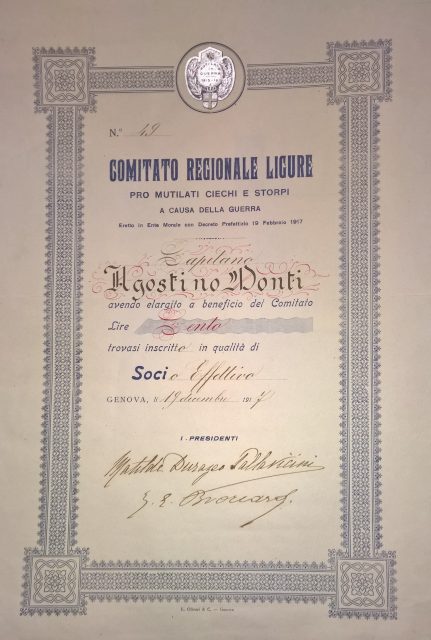 GUERRA
1915-18
N.° 49
COMITATO REGIONALE LIGURE
PRO MUTILATI CIECHI E STORPI
A CAUSA DELLA GUERRA
Eretto in Ente Morale con Decreto Prefettizio 19 Febbraio 1917
Capitano
Agostino Monti
avendo elargito a beneficio del Comitato
Lire Cento
trovasi inscritto in qualità di
Socio Effettivo
GENOVA, li 19 dicembre 1917
I PRESIDENTI
Matilde Durazzo Pallavicini
E. Oliveri & C. - Genova